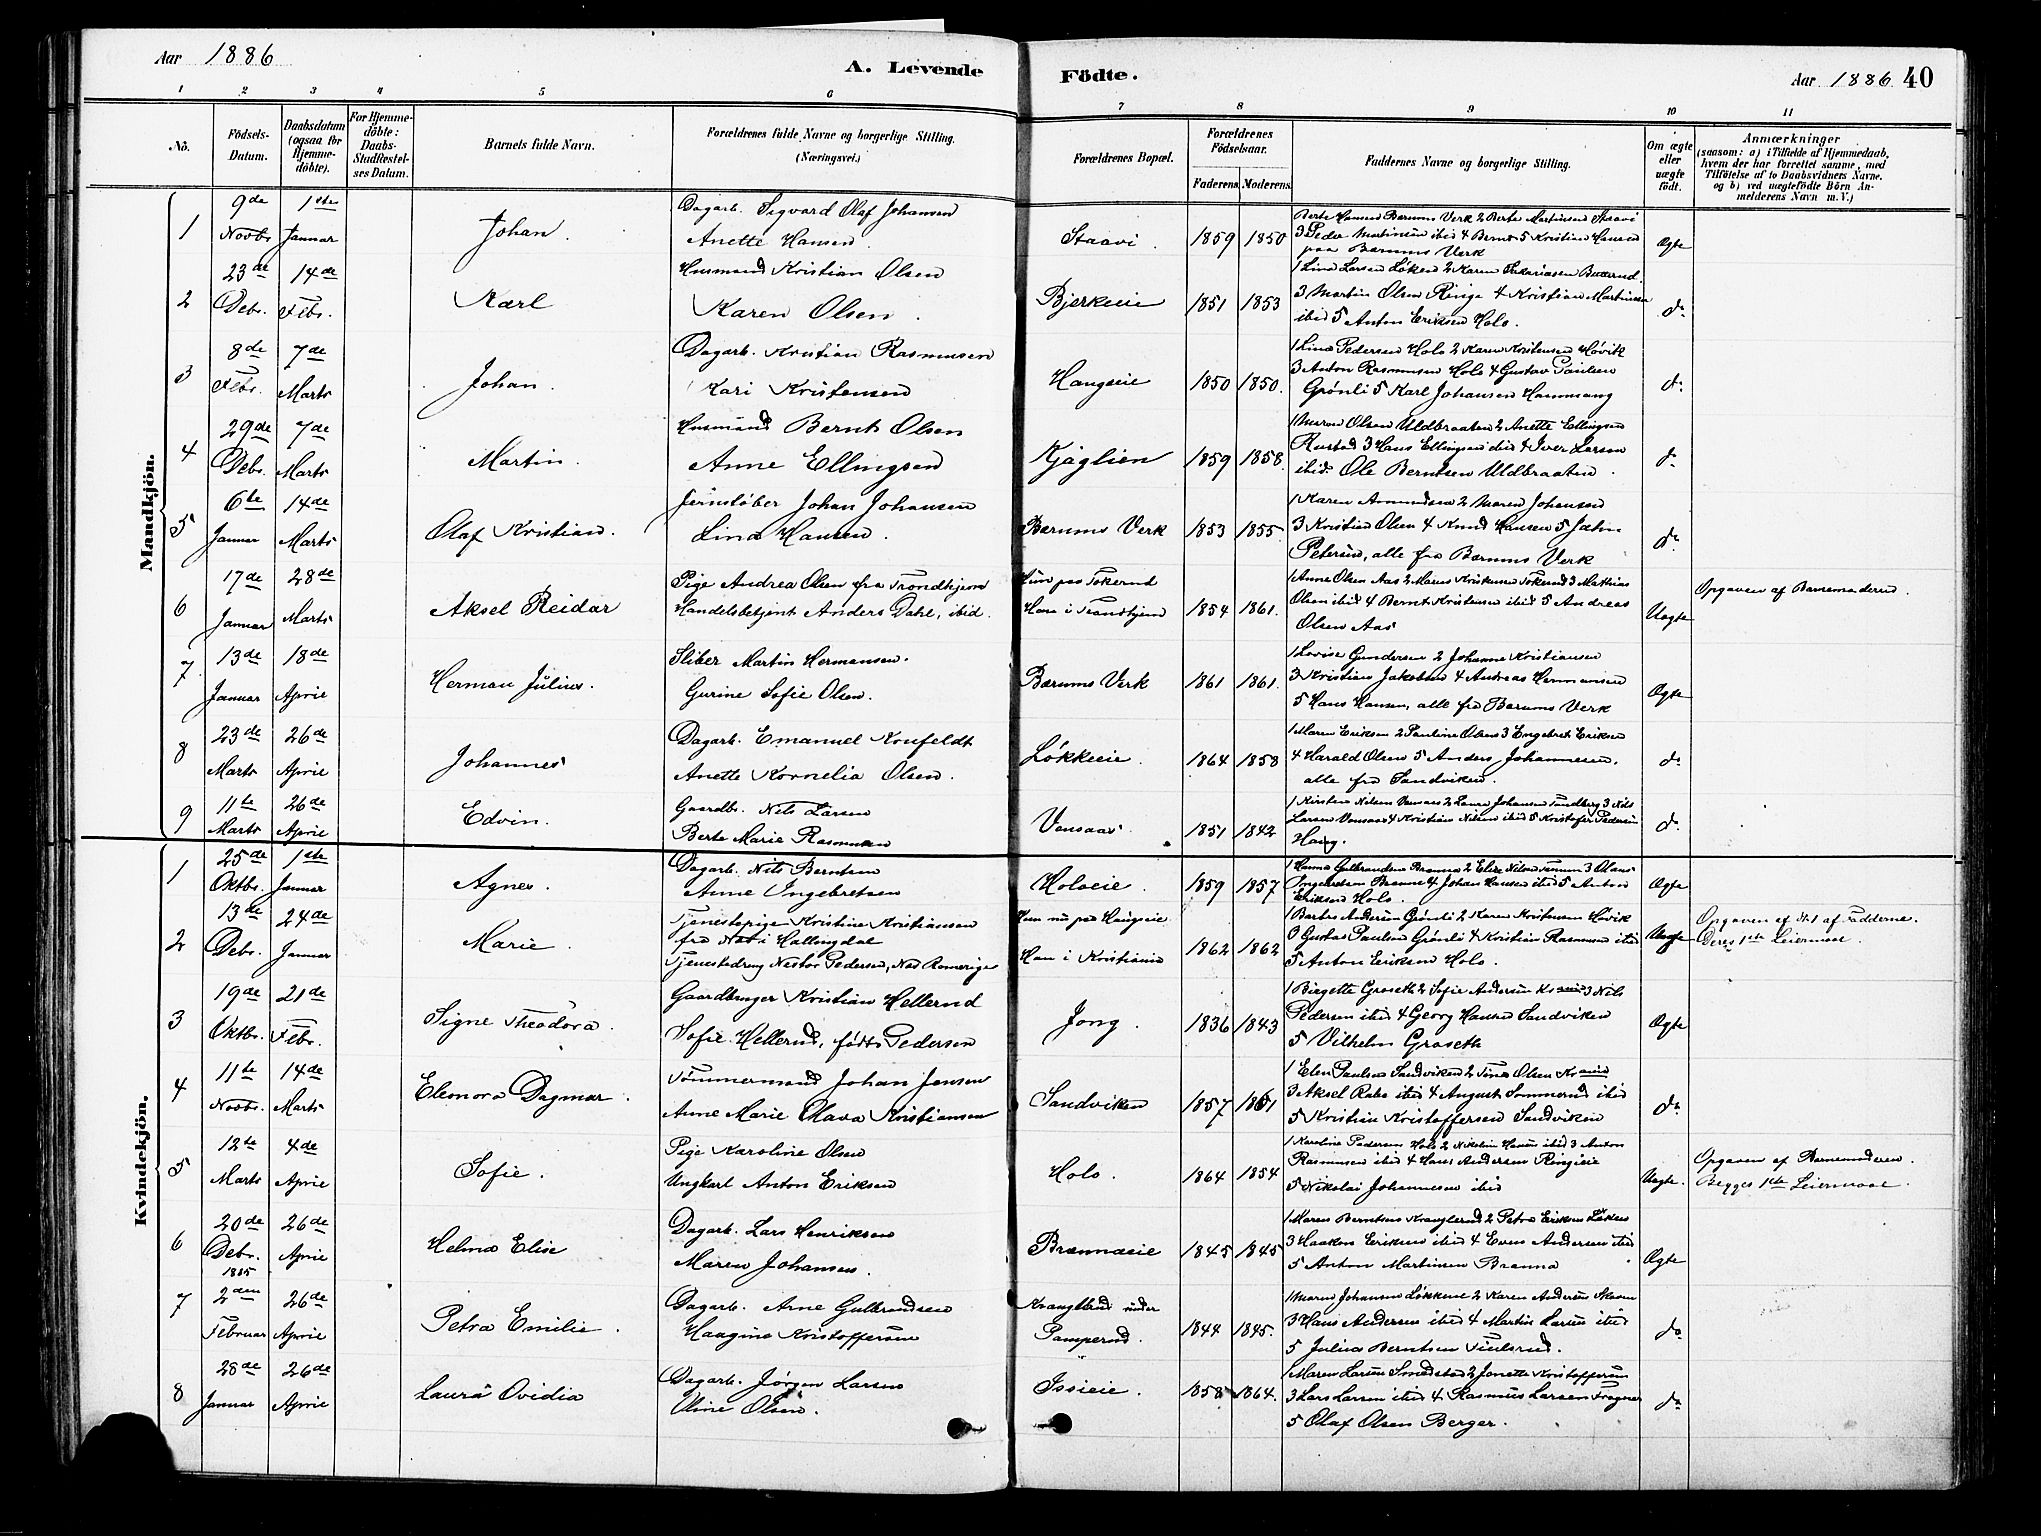 Aar 1886
A. Levende
Födte.
Aar 1886 40
1 2 3 4 5 6 7 8 9 10 11
No.
Födsels-
Datum.
Daabsdatum
(ogsaa for
Hjemme-
döbte).
For Hjemme-
döbte:
Daabs-
Stadfæstel-
ses Datum.
Barnets fulde Navn.
Forældrenes fulde Navne og borgerlige Stilling.
(Næringsvei.)
Forældrenes Bopæl.
Forældrenes
Födselsaar.
Faderens. Moderens.
Faddernes Navne og borgerlige Stilling.
Om ægte
eller
uægte
födt.
Anmærkninger
(saasom: a) i Tilfælde af Hjemmedaab,
hvem der har forrettet samme, med
Tilföielse af to Daabsvidners Navne,
og b) ved uægtefödte Börn An-
melderens Navn m. V.)
Mandkjön.
1 9de Novbr. 1ste Januar Johan. Dagarb. Sigvard Olaf Johansen
Anette Hansen. Staavi. 1859 1850 Berte Hansen Bærums Verk 2 Berte Martinsen Staavi
3 Peder Martinsen ibid 4 Bernt 5 Kristine Hansen
paa Bærums Verk Ægte
2 23de Debr. 14de Febr. Karl Husmand Kristian Olsen
Karen Olsen. Bjerkeeie 1851 1853 1 Lina Larsen Løken 2 Karen
3 Martin Olsen Ringi 4 Kristian Martinsen
ibid 5 Anton Eriksen Holo. do
3 8de Febr. 7de Marts Johan. Dagarb. Kristian Rasmussen
Kari Kristensen Haugseie 1850 1850. 1 Lina Pedersen Holo 2 Karen Kristensen Høvik
3 Anton Rasmussen Holo 4 Gustav Paulsen
Grønli 5 Karl Johansen Hammang do
4 29de Debr. 7de Marts Martin. Husmand Bernt Olsen
Anne Ellingsen Kjaglien 1859 1858. 1 Maren Olsen Uldbraaten 2 Anette Ellingsen
Rustad 3 Hans Ellingsen ibid 4 Iver Larsen
ibid. Ole Berntsen Uldbraaten. do
5 6te Januar 14de Marts Olaf Kristian. Jernstøber Johan Johansen
Lina Hansen. Bærums Verk 1853 1855. 1 Karen Amundsen 2 Maren Johansen
3 Kristian Olsen 4 Knud Hansen 5 John
Petersen, alle fra Bærums Verk do
6 17de Januar 28de Marts Aksel Reidar Pige Andrea Olsen fra Trondhjem
Handelsbetjent Anders Dahl, ibid. Hun paa Tokerud
Han i Trondhjem 1854 1861. 1 Anne Olsen Aas 2 Maren Kristensen Tokerud 3 Mathias
Olsen ibid 4 Bernt Kristensen ibid 5 Andreas
Olsen Aas Uægte Opgaven af Barnemoderen.
7 13de Januar 18de April Herman Julius. Sliber Martin Hermansen.
Gurine Sofie Olsen. Bærums Verk 1861 1861. 1 Lovise Gundersen 2 Johanne Kristiansen
3 Kristian Jakobsen 4 Andreas Hermansen
5 Hans Hansen, alle fra Bærums Verk Ægte
8 23de Marts 26de April Johannes Dagarb. Emanuel Konfeldt
Anette Kornelia Olsen. Løkkeeie. 1864 1858 1 Maren Eriksen 2 Pauline Olsen 3 Engebret Eriksen
4 Harald Olsen 5 Anders Johannesen,
alle fra Sandviken. do
9 11te Marts 26de April Edvin. Gaardbr. Nils Larsen
Berte Marie Rasmussen Vensaas. 1851 1842 1 Kirstine Nilsen Vensaas 2 Laura Johansen Sandberg 3 Nils
Larsen Vensaas 4 Kristian Nilsen ibid 5 Kristofer Pedersen
Haug. do
Kvindekjön.
1 25de Oktbr. 1ste Januar Agnes. Dagarb. Nils Berntsen
Anne Ingebretsen Holoeie. 1859 1857 1 Hanna Gulbrandsen Brænna 2 Elise Nilsen 3 Olaus
Ingebretsen Brænna 4 Johan Hansen ibid 5 Anton
Eriksen Holo. Ægte
2 13de Debr. 24de Januar Marie. Tjenestepige Kristine Kristiansen
fra Næs i Hallingdal
Tjenestedreng Nestor Pedersen, Næs Romerige Hun nu paa Haugseie
Han i Kristiania 1862 1862 1 Barbra Andersen Grønli 2 Karen Kristensen Høvik
3 Gustav Paulsen Grønli 4 Kristian Rasmussen ibid
5 Anton Eriksen Holo. Uægte Opgaven af N.1 af Fadderne.
Deres 1ste Leiermaal.
3 19de Oktbr. 21de Febr. Signe Theodora. Gaardbruger Kristian Hellerud
Sofie Hellerud, født Pedersen Jong. 1836 1843 1 Birgette Groseth 2 Sofie Andersen 3 Nils
Pedersen ibid 4 Georg Hansen Sandviken
5 Vilhelm Groseth Ægte
4 11te Novbr. 14de Marts Eleonora Dagmar. Tømmermand Johan Jensen
Anne Marie Olava Kristiansen Sandviken 1857 1861 1 Elen Paulsen Sandviken 2 Tina Olsen
3 Aksel ibid 4 August Sommerud ibid
5 Kristian Kristoffersen Sandviken do
5 12te Marts 4de April Sofie. Pige Karoline Olsen
Ungkarl Anton Eriksen Holo. 1864 1854 1 Karoline Pedersen Holo 2 Nikoline Hansen ibid 3 Anton
Rasmussen ibid 4 Hans Andersen Ringieie
5 Nikolai Johannesen ibid Uægte. Opgaven af Barnemoderen.
Begges 1ste Leiermaal.
6 20de Debr. 1885 26de April Helma Elise Dagarb. Lars Henriksen
Maren Johansen. Brænnaeie 1845 1845 1 Maren Berntsen Kranglerud 2 Petra Eriksen Løken
3 Haakon Eriksen ibid 4 Even Andersen ibid
5 Anton Martinsen Brænna Ægte
7 2den Februar 26de April Petra Emilie. Dagarb. Arne Gulbrandsen
Haagine Kristoffersen Kranglerud under
Pamperud. 1844 1845. 1 Maren Johansen Løkkeeie 2 Karen Andersen
3 Hans Andersen ibid 4 Martin Larsen ibid
5 Julius Berntsen do
8 28de Januar 26de April Laura Ovidia Dagarb. Jørgen Larsen
Oline Olsen. Issieie. 1858 1864. 1 Maren Larsen Smedstad 2 Jonette Kristoffersen
3 Lars Larsen ibid 4 Rasmus Larsen Frogner
5 Olaf Olsen Berger. do